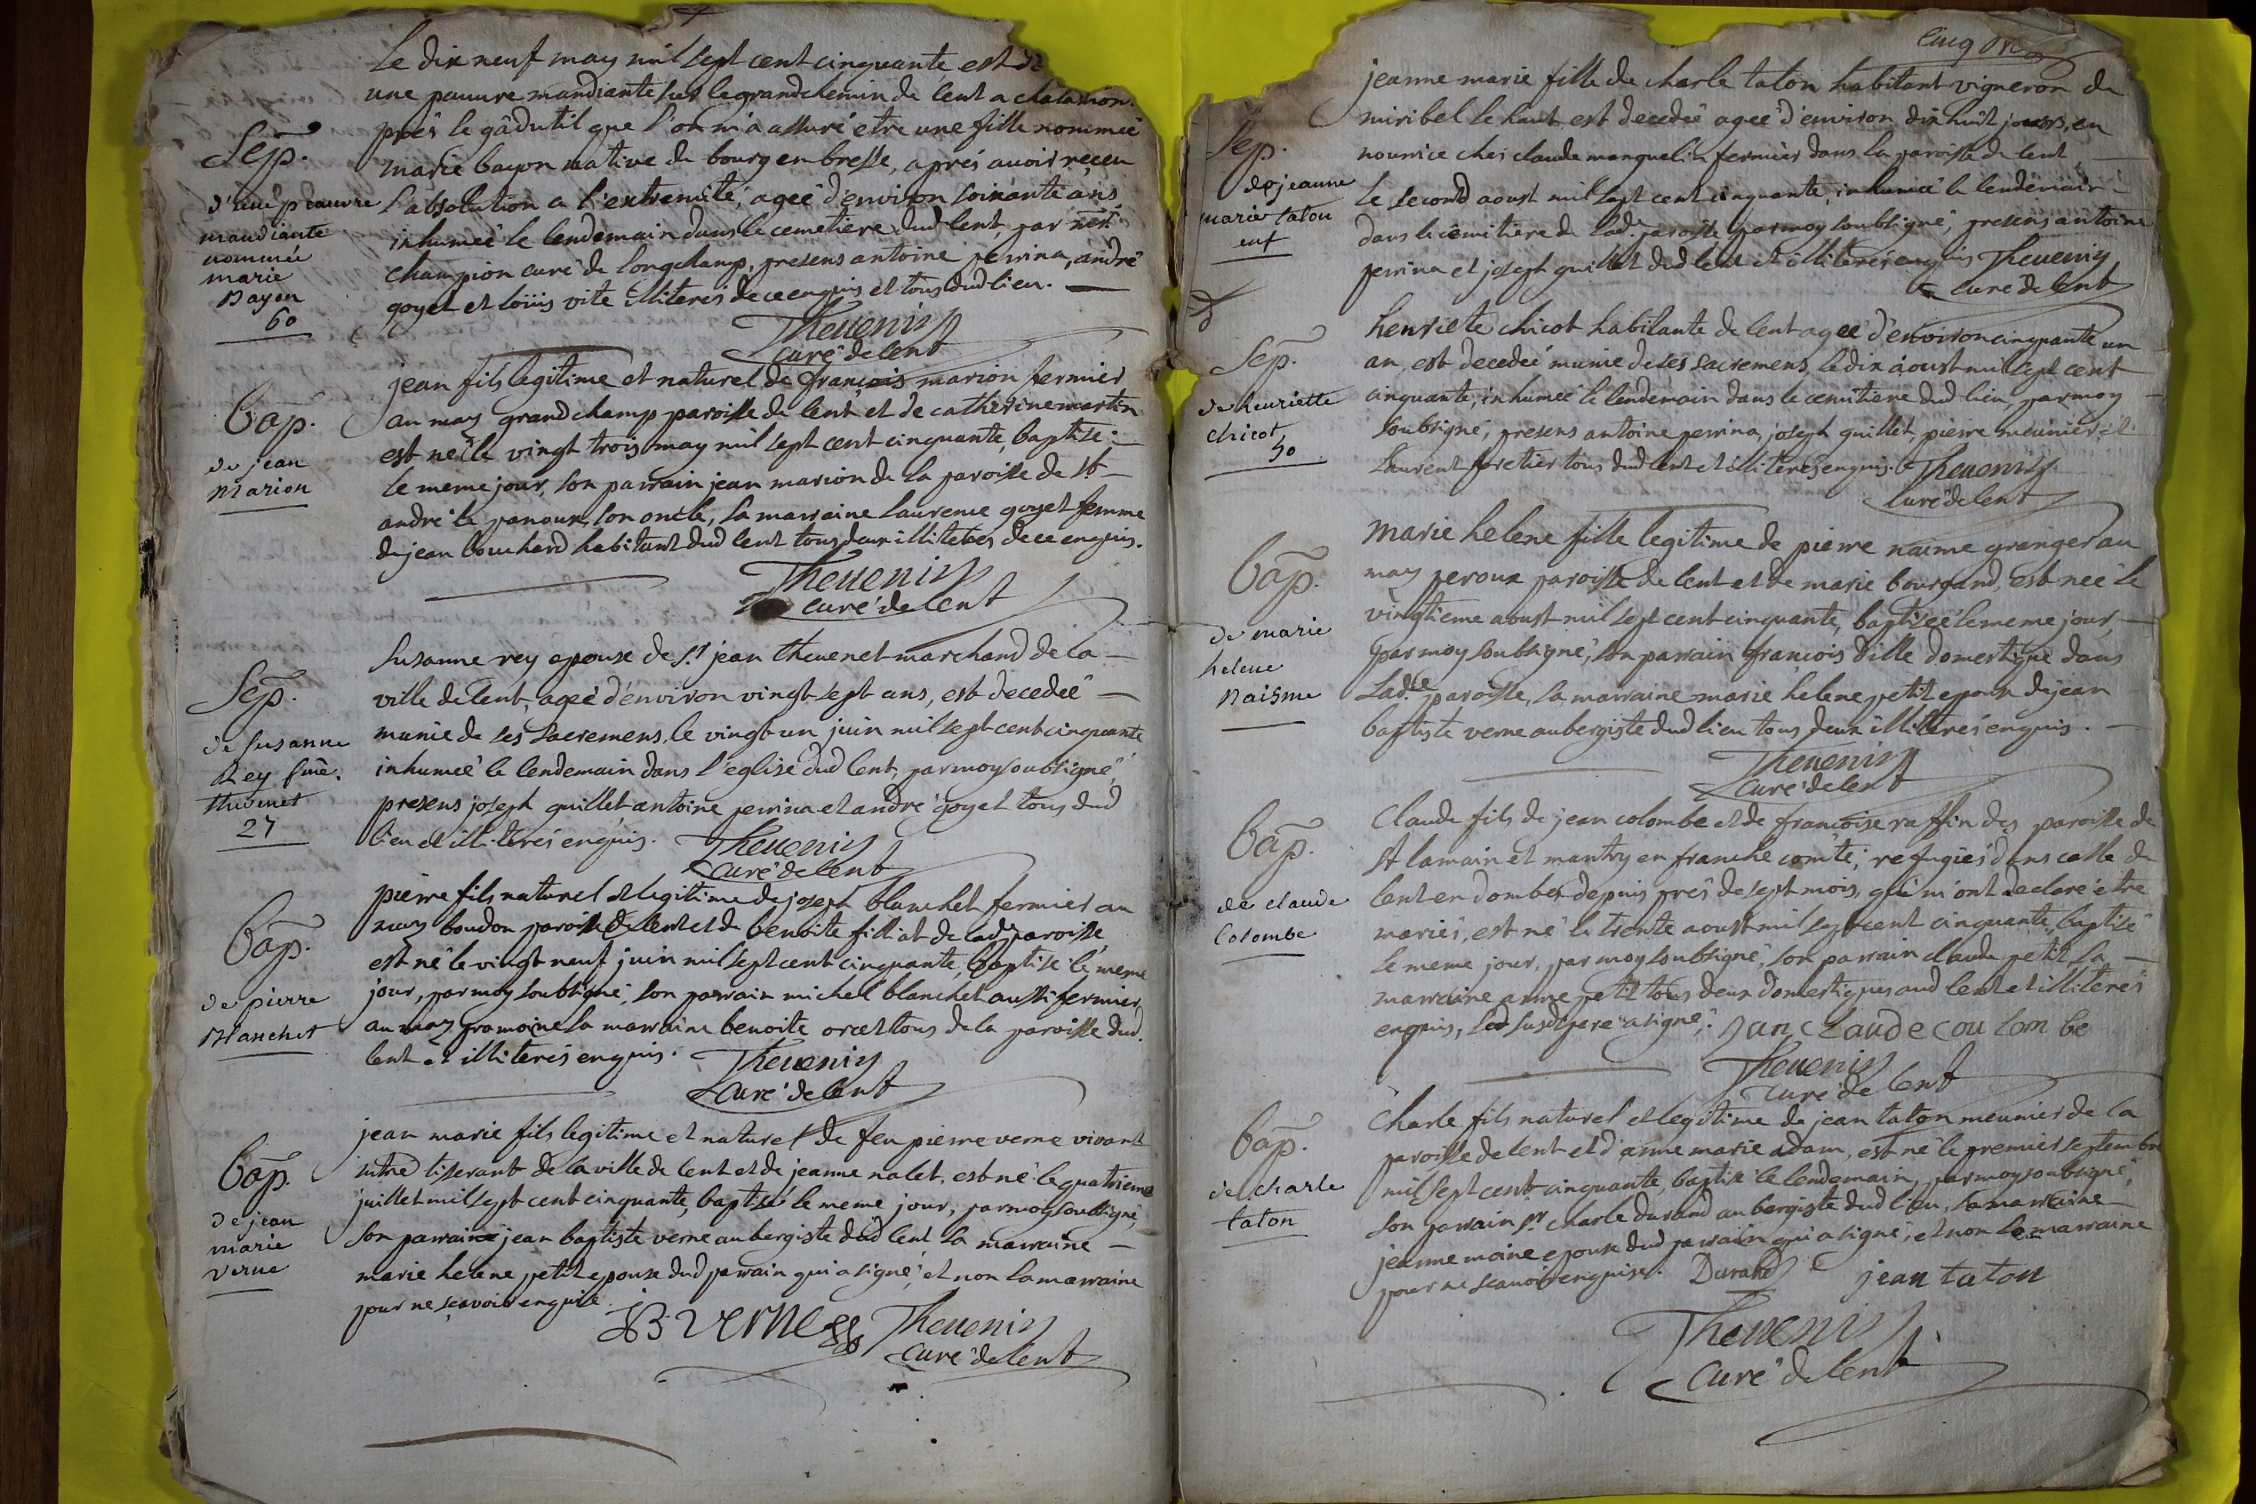 Le dix neuf may mil sept cent cinquante est
une pauure mandiante sur le grand chemin de lent a chalamon
près le gâdutil que l'on m'a assuré etre une fille nommeé
Sep.
marie bayon native de bourg en bresse, aprés auoir reçeu
d'une pauure
l'absolution a l'extremité, ageé d'environ soixante ans
mandiante
inhumeé le lendemain dans le cemetiere dud lent par
nommeé
champion curé de longchamp, presens antoine perrina, andré
marie
goyet et loüis vite illiteres de ce enquis et tous dud lieu.
Bayon
60
Theuenin
curé de lent
jean fils legitime et naturel de françois marion fermier
Bap.
au mas grand champ paroisse de lent et de catherine martin
est né le vingt trois may mil sept cent cinquante, baptisé
de jean
Marion
le meme jour, son parrain jean marion de la paroisse de st
andré le panoux, son oncle, sa marraine laurence goyet femme
de jean bouchard habitant dud lent tous deux illiteres de ce enquis.
Theuenin
curé de lent
Susanne rey epouse de sr jean theuenet marchand de la
Sep.
ville de lent, ageé d'environ vingt sept ans, est decedeé
munie de ses sacremens, le vingt un juin mil sept cent cinquante
de susanne
Rey fme
inhumeé le lendemain dans l'eglise dud lent, par moy soubsigné,
Thevenet
27
presens joseph guillet antoine perrina et andré goyet tous dud
lieu et illiterés enquis.
Theuenin
curé de lent
pierre fils naturel et legitime de joseph blanchet fermier au
mas boudon paroisse de lent et de benoite filliat de lad paroisse
Bap.
est né le vingt neuf juin mil sept cent cinquante, baptisé le meme
de pierre
jour, par moy soubsigné, son parrain michel blanchet aussi fermier
Blanchet
au mas gramoine la marraine benoite orcet tous de la paroisse dud.
lent et illiterés enquis.
Theuenin
curé de lent
jean marie fils legitime et naturel de feu pierre verne vivant
Bap.
mtre tisserant de la ville de lent et de jeanne nalet, est né le quatrieme
juillet mil sept cent cinquante, baptisé le meme jour, par moy soubsigné,
de jean
marie
verne
son parrain jean baptiste verne aubergiste dud lent la marraine
marie helene petit epouse dud parrain qui a signé, et non la marraine
pour ne sçavoir enquise.
JB verne
Theuenin
curé de lent
jeanne marie fille de charle taton habitant vigneron de
miribel le haut est decedeé ageé d'environ dix huit jours, en
Sep.
nourrice ches claude manguelin fermier dans la paroisse de lent
de jeanne
marie taton
enf
le second aoust mil sept cent cinquante, inhumeé le lendemain
dans le cemitiere de lad. paroisse par moy soubsigné, presens antoine
perrina et joseph guillet dud lent et illiteres enquis
Theuenin
curé de lent
henriete chicot habitante de lent ageé d'environ cinquante un
Sep.
an, est decedeé munie de ses sacremens, le dix aoust mil sept cent
de henriette
chicot
50
cinquante, inhumeé le lendemain dans le cemitiere dud lieu, par moy
soubsigné, presens antoine perrina, joseph guillet, pierre meunier et
laurent foretier tous dud lent et illiterés enquis.
Theuenin
curé de lent
Marie helene fille legitime de pierre naime granger au
Bap.
mas peroux paroisse de lent et de marie bourgand, est neé le
vingtieme aoust mil sept cent cinquante, baptiseé le meme jour,
de marie
helene
Naisme
par moy soubsigné, son parrain francois dille domestique dans
lad.te paroisse, la marraine marie helene petit epouse de jean
baptiste verne aubergiste dud lieu tous deux illiterés enquis.
Theuenin
curé de lent
Claude fils de jean colombe et de francoise raffin des paroisse de
Bap.
st lamain et mantry en franche comté, refugiés dans celle de
de claude
Colombe
lent en dombes depuis près de sept mois, qui m'ont declaré etre
mariés, est né le trente aoust mil sept cent cinquante, baptisé
le meme jour, par moy soubsigné, son parrain claude petit, la
marraine anne petit tous deux domestiques aud lent et illiterés
enquis, led susd pere a signé.
Jan claude cou lon be
Theuenin
curé de lent
Charle fils naturel et legitime de jean taton meunier de la
Bap.
paroisse de lent et d'anne marie adam, est né le premier septembre
de charle
taton
mil sept cent cinquante, baptisé le lendemain, par moy soubsigné,
son parrain sr charle durand aubergiste dud lieu, la marraine
jeanne moine epouse dud parrain qui a signé, et non la marraine
pour ne scauoir enquise.
Durand
jean taton
Theuenin
curé de lent